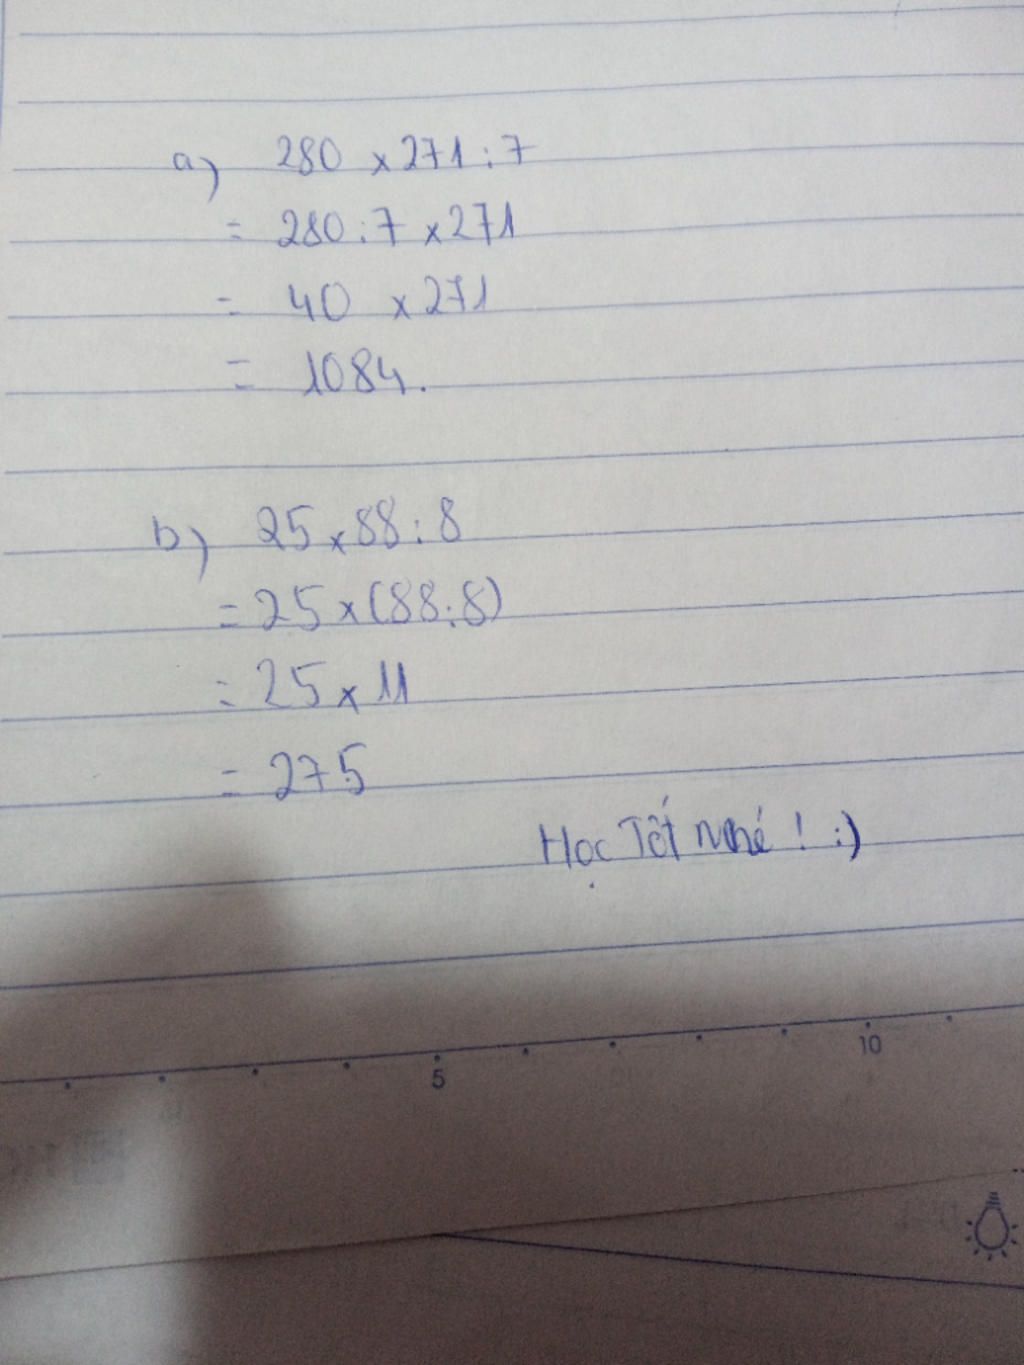 a) 280 x 271 : 7
= 280 : 7 x 271
= 40 x 271
= 1084.
b) 25 x 88 : 8
= 25 x (88 : 8)
= 25 x 11
= 275
Học Tốt Nhé ! :)
5
10